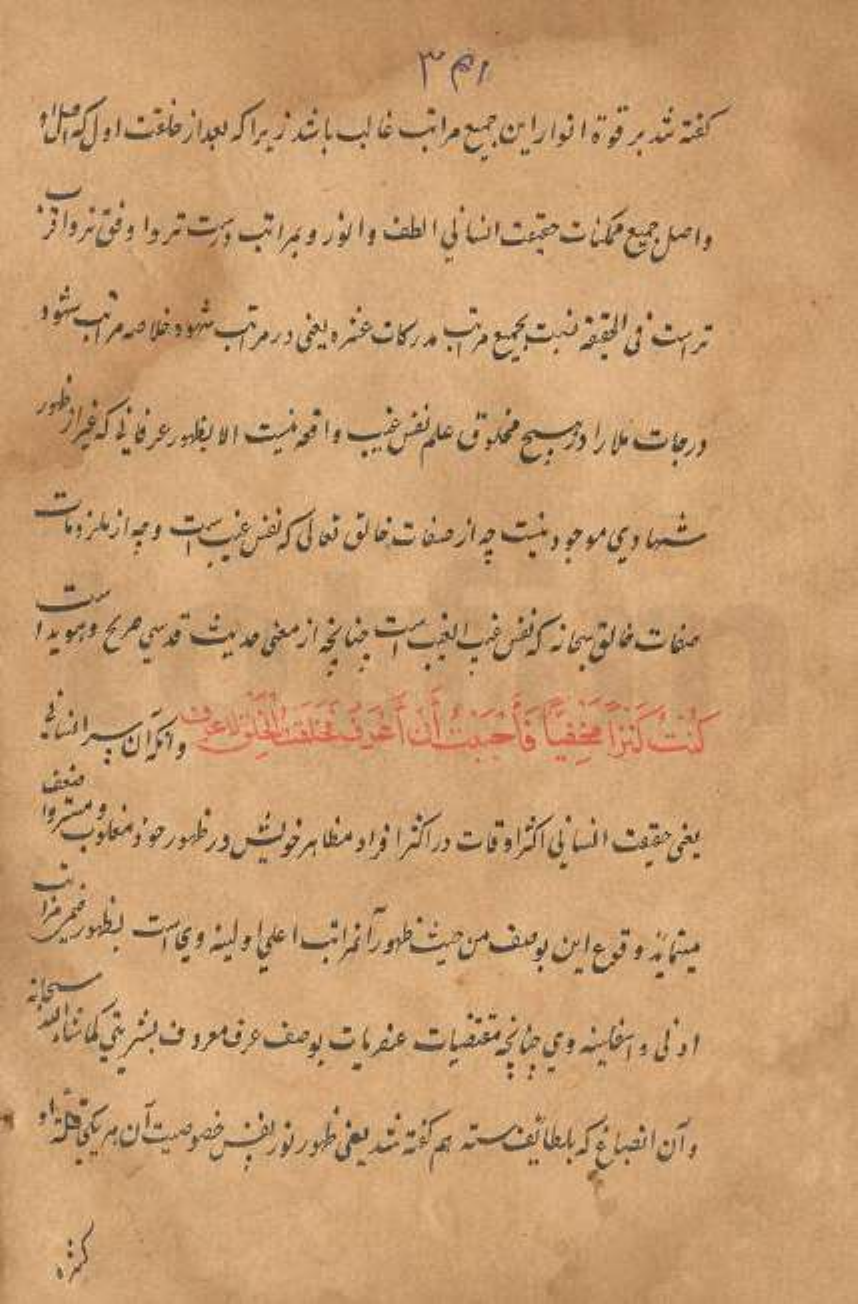 گفته شد بر قوة انوار این جمیع مراتب غالب باشد زیرا که بعد از خلقت اول که اصل او
و اصل جمیع ممکنات حقیقت انسانی الطف و انور و بمراتب درست تر و اوفق تر و اقرب
تر است فی الحقیقه نسبت بجمیع مراتب مدرکات عنصره یعنی در مراتب شهود خلاصه مراتب شهود
درجات ملا را در هیچ مخلوق علم نفس غیب واقعه نیست الا بظهور عرفانی که غیر از ظهور
شهادی موجود نیست چه از صفات خالق تعالی که نفس غیب است و چه از ملزومات
صفات خالق سبحانه که نفس غیب الغیب است چنانچه از معنی حدیث قدسی صریح و هویدا است
كُنْتُ كَنْزاً مَخْفِيّاً فَأَحْبَبْتُ أَنْ أُعْرَفَ فَخَلَقْتُ الْخَلْقَ لِأُعْرَفَ و آنکه آن سر انسانی
یعنی حقیقت انسانی اکثر اوقات در اکثر افراد مظاهر خویش در ظهور خود مغلوب و مستور و ضعف
مینماید وقوع این بوصف من حیث ظهور آنمراتب اعلی اولینه وی است بظهور مراتب
ادنی و اسفلینه وی چنانچه مقتضیات عنصریات بوصف عرف معروف بشریتی کما شاء الله سبحانه
و آن انصباغ که بلطائف سته هم گفته شد یعنی ظهور نور بنفس خصوصیت آن هر یکی او